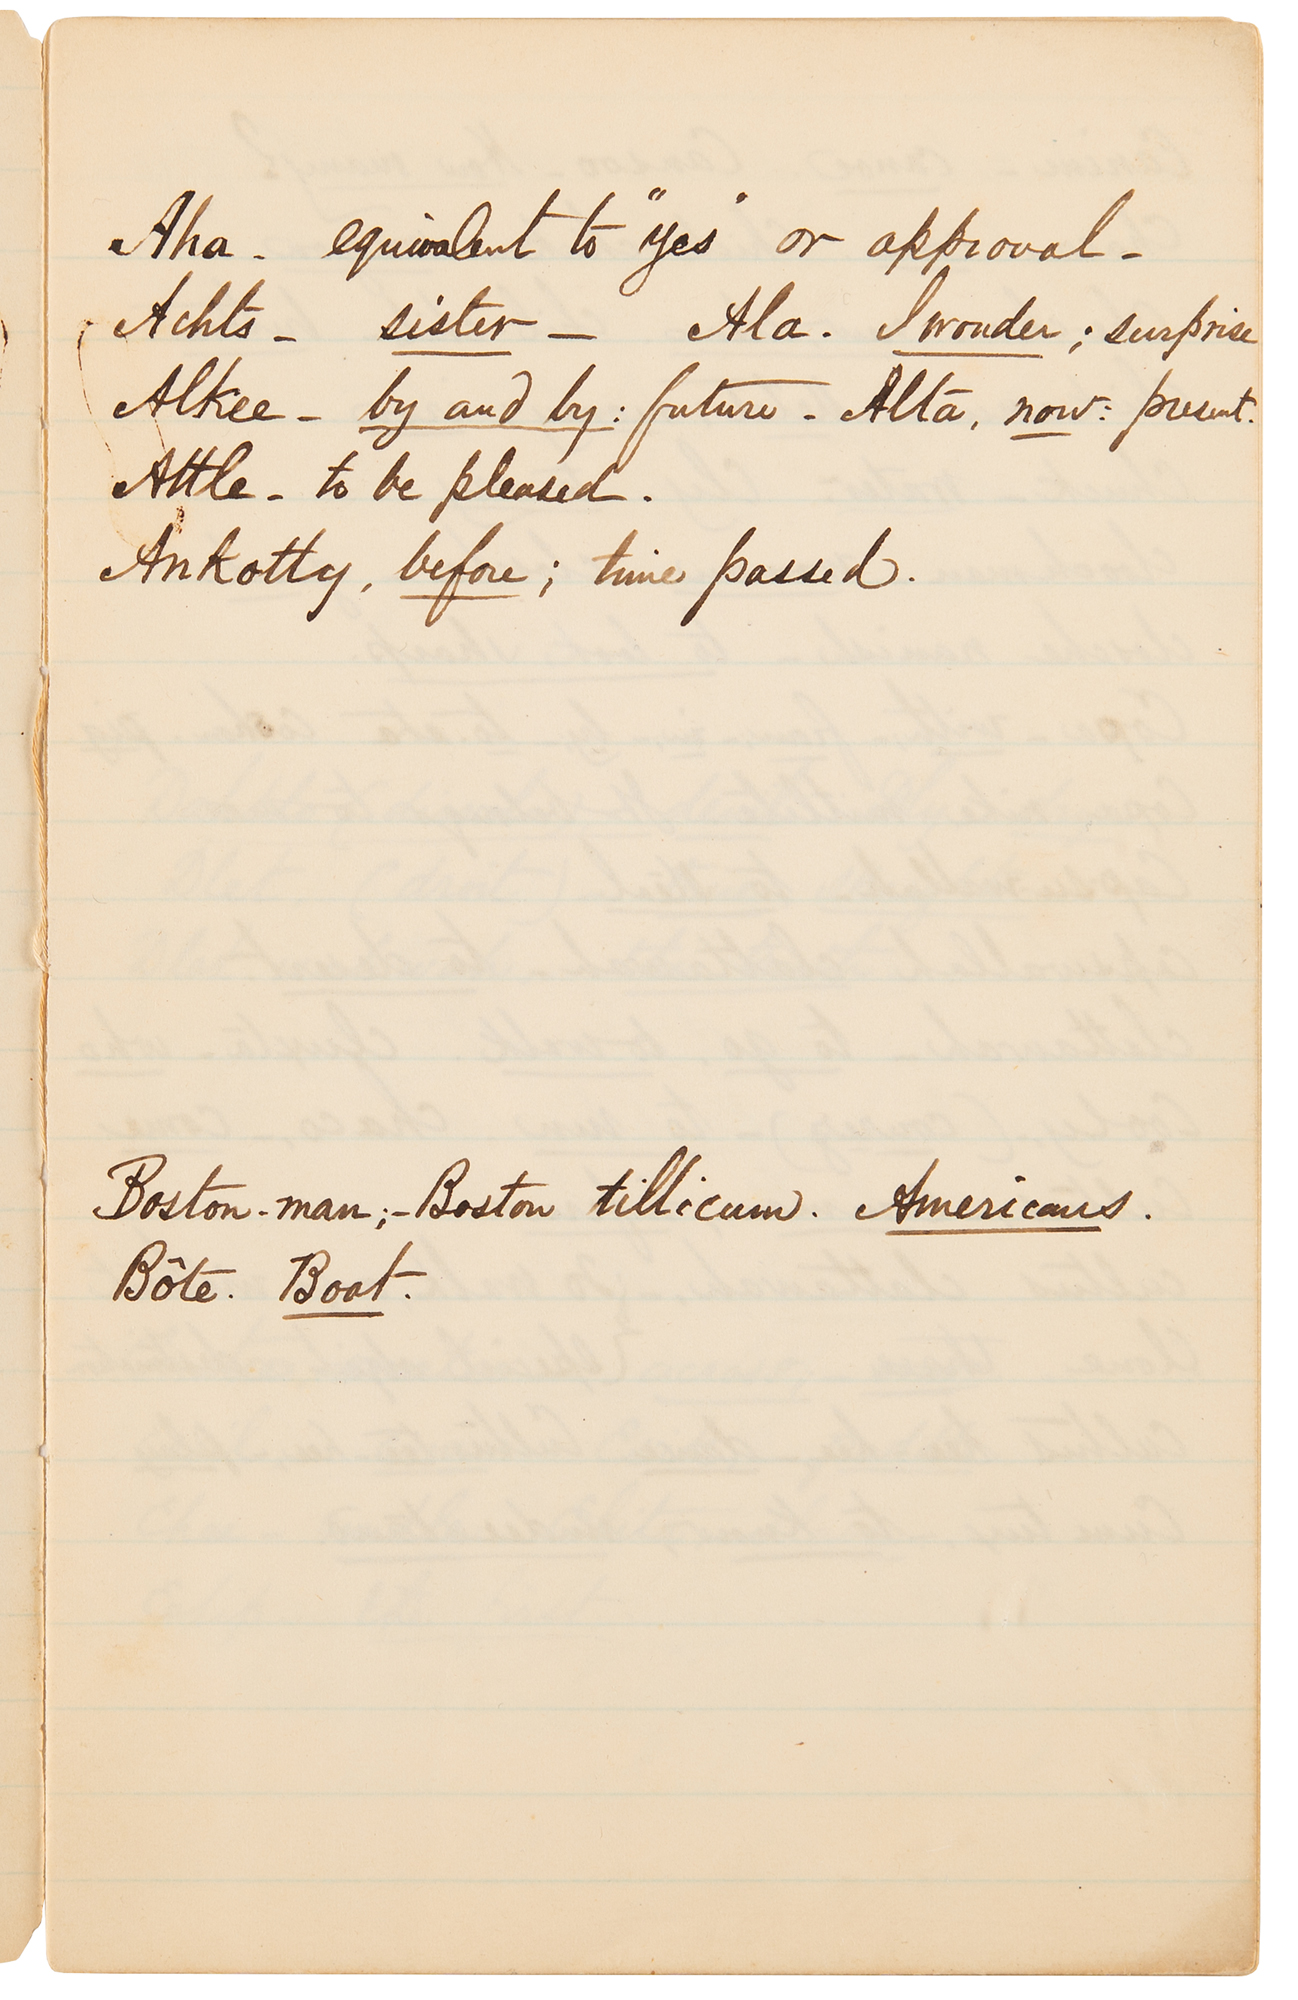 Aha - equivalent to "yes" or approval -
Achts - sister - Ala. I wonder; surprise
Alkee - by and by: future - Alta, now: present.
Attle - to be pleased.
Ankotty, before; time passed.
Boston-man;- Boston tillicum. Americans.
Bôte. Boat.